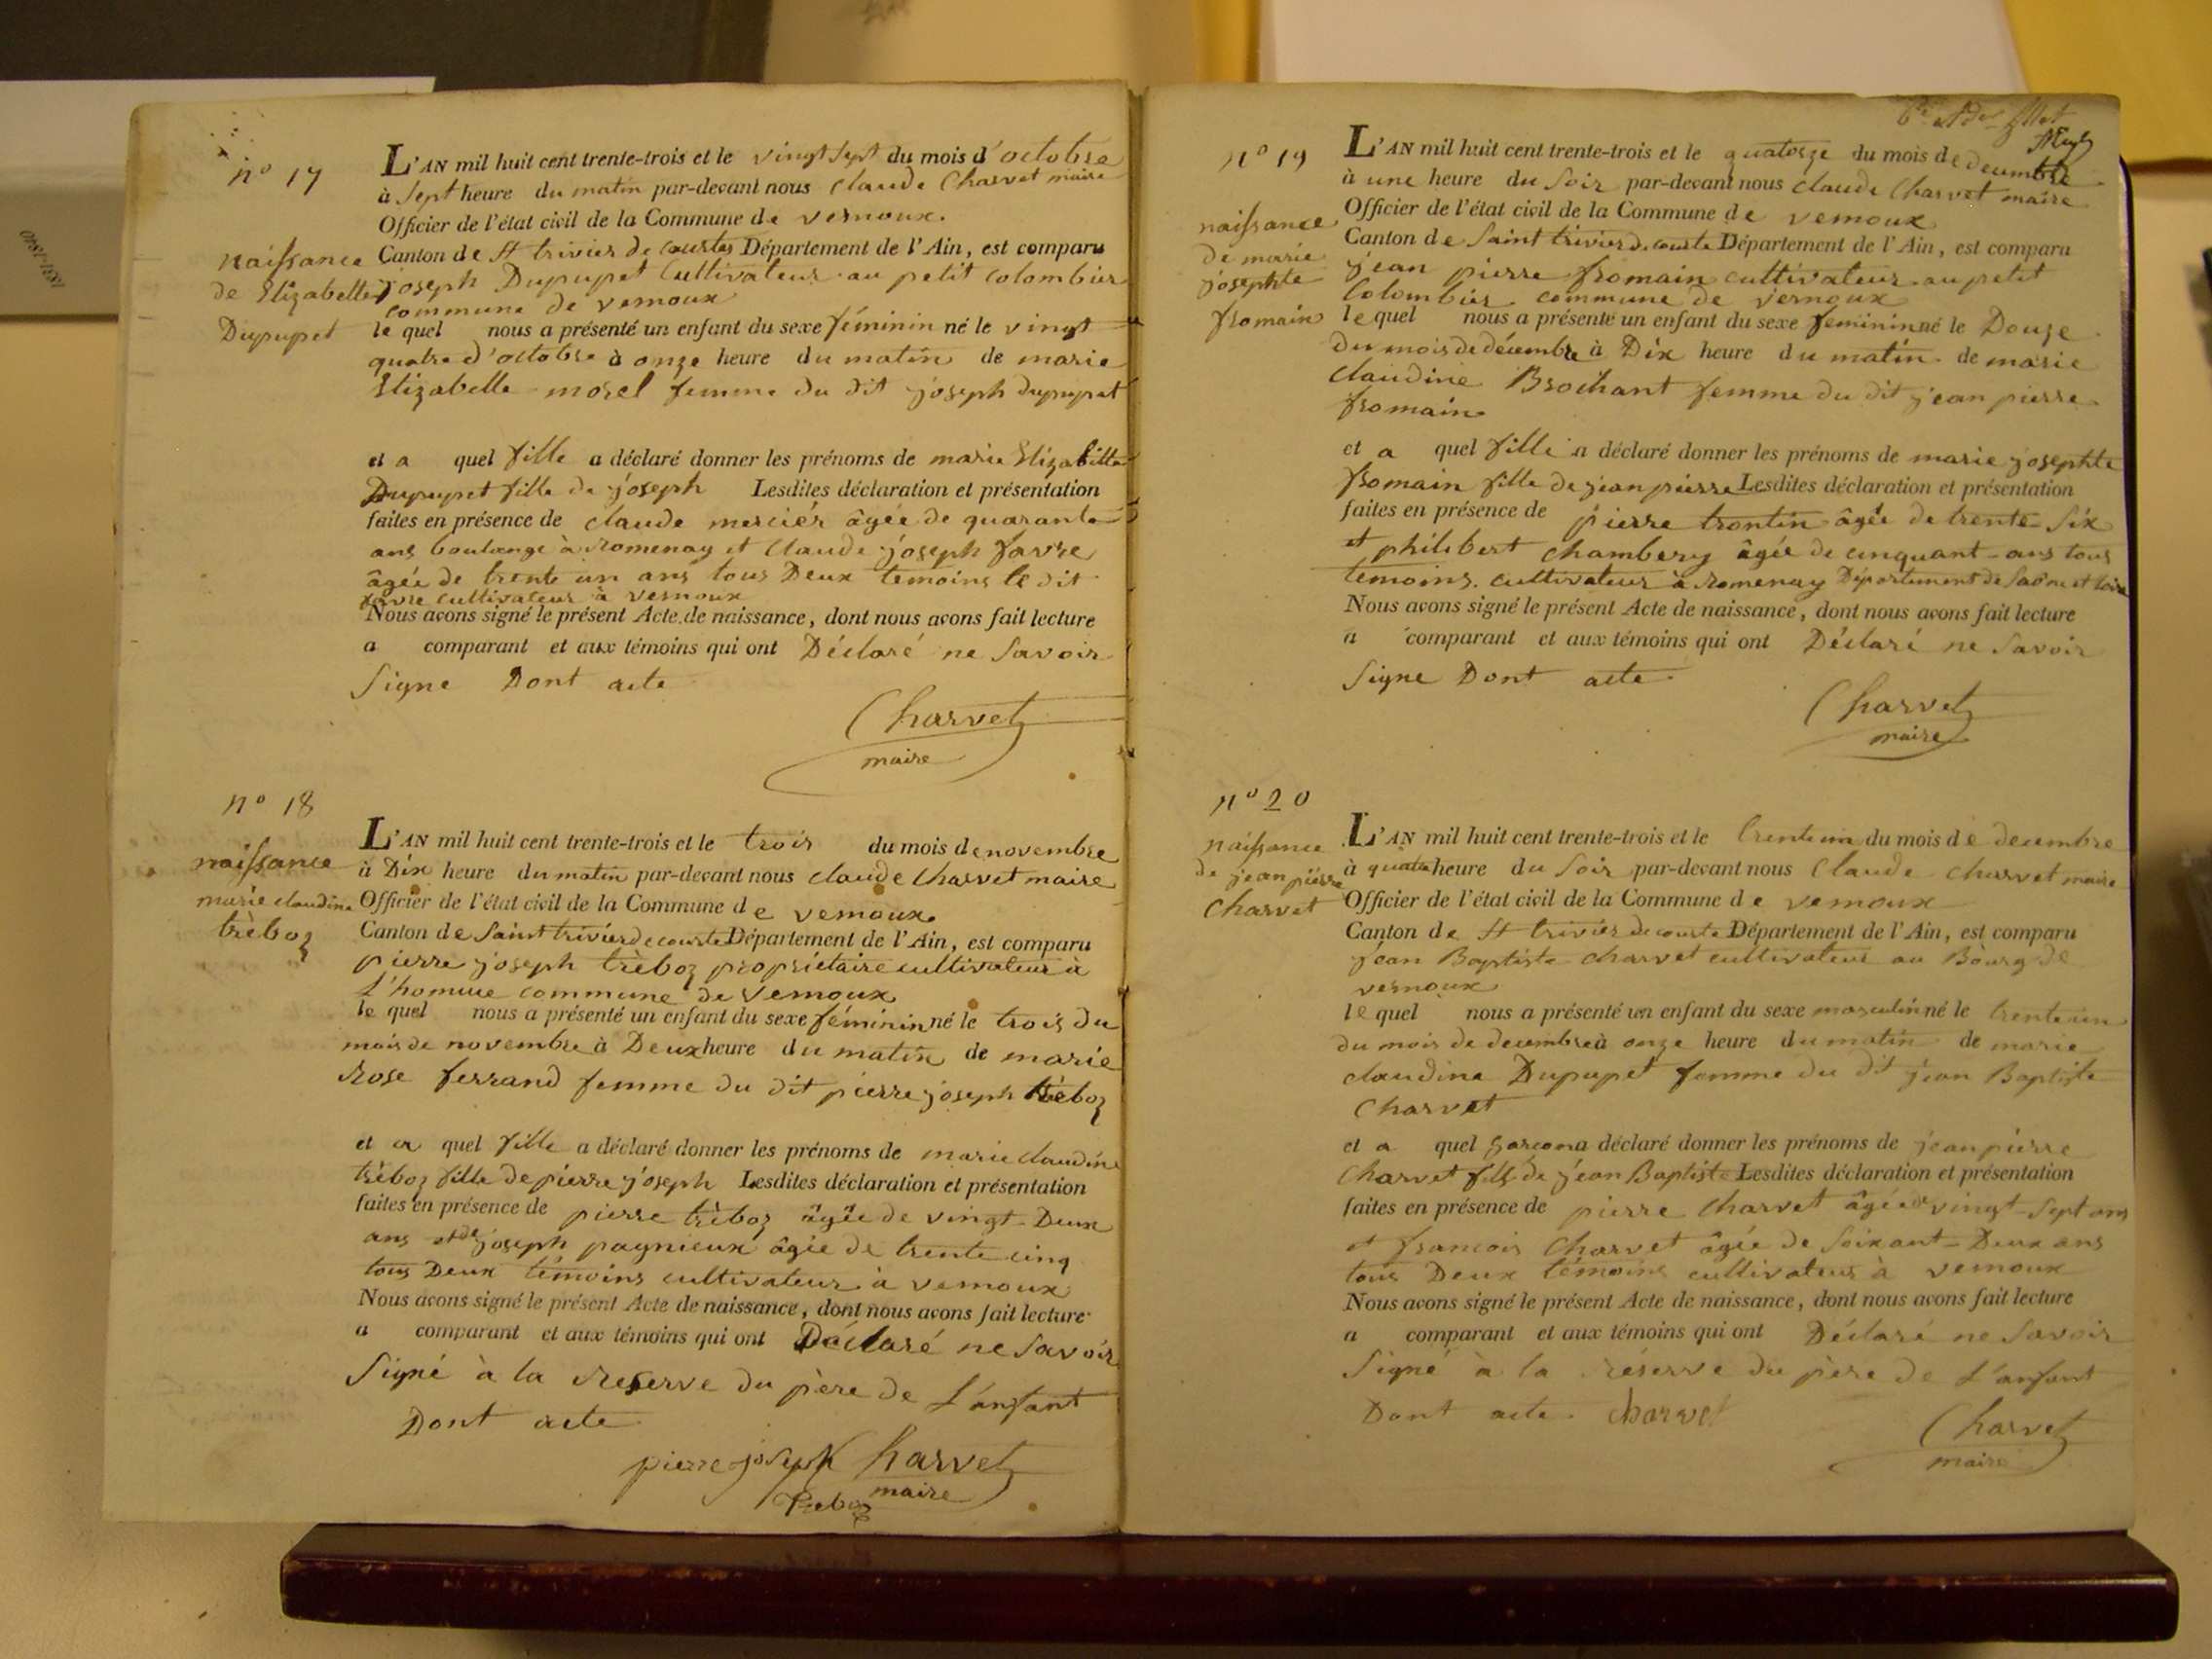 n° 17
naissance
de Elizabelle
Dupupet
L'AN mil huit cent trente-trois et le vingt sept du mois d'octobre
à sept heure du matin par-devant nous Claude Charvet maire
Officier de l'état civil de la Commune de vernoux.
Canton de St trivier de courtes Département de l'Ain, est comparu
joseph Dupupet Cultivateur au petit colombier
commune de vernoux
le quel nous a présenté un enfant du sexe féminin né le vingt
quatre d'octobre à onze heure du matin de marie
Elizabelle morel femme du dit joseph dupupet
et a quel fille a déclaré donner les prénoms de marie Elizabelle
Dupupet fille de joseph Lesdites déclaration et présentation
faites en présence de claude mercier âgée de quarante
ans boulange à romenay et Claude joseph favre
âgée de trente un ans tous Deux temoins le dit
favre cultivateur à vernoux
Nous avons signé le présent Acte de naissance, dont nous avons fait lecture
a comparant et aux témoins qui ont Déclaré ne Savoir
Signe Dont acte
Charvet
maire
n° 18
naissance
marie claudine
trèboz
L'AN mil huit cent trente-trois et le trois du mois de novembre
à Dix heure du matin par-devant nous claude Charvet maire
Officier de l'état civil de la Commune de vernoux.
Canton de Saint trivier de courte Département de l'Ain, est comparu
pierre joseph trèboz propriétaire cultivateur à
commune de vernoux
le quel nous a présenté un enfant du sexe féminin né le trois du
mois de novembre à Deux heure du matin de marie
Rose ferrand femme du dit pierre joseph trèboz
et a quel fille a déclaré donner les prénoms de marie claudine
trèboz fille de pierre joseph Lesdites déclaration et présentation
faites en présence de pierre trèboz âgée de vingt-Deux
ans et de joseph pagnieux âgée de trente cinq
tous Deux témoins cultivateur à vernoux
Nous avons signé le présent Acte de naissance, dont nous avons fait lecture
a comparant et aux témoins qui ont Déclaré ne Savoir
Signé à la reserve du père de L'anfant
Dont acte
pierre joseph Charvet
Treboz maire
n° 19
naissance
de marie
josephte
fromain
L'AN mil huit cent trente-trois et le quatorze du mois de decembre
à une heure du Soir par-devant nous claude Charvet maire
Officier de l'état civil de la Commune de vernoux
Canton de Saint trivier de courte Département de l'Ain, est comparu
jean pierre fromain cultivateur au petit
Colombier commune de vernoux
le quel nous a présenté un enfant du sexe feminin né le Douze
du mois de décembre à Dix heure du matin de marie
claudine Brochant femme du dit jean pierre
fromain
et a quel fille a déclaré donner les prénoms de marie josephte
fromain fille de jean pierre Lesdites déclaration et présentation
faites en présence de pierre trontin âgée de trente six
et philibert chambery âgée de cinquant ans tous
témoins cultivateur à romenay Département de Saône et loire
Nous avons signé le présent Acte de naissance, dont nous avons fait lecture
a comparant et aux témoins qui ont Déclaré ne Savoir
Signe Dont acte.
Charvet
maire
n° 20
naissance
de jean pierre
Charvet
L'AN mil huit cent trente-trois et le trente un du mois de decembre
à quatre heure du Soir par-devant nous Claude charvet maire
Officier de l'état civil de la Commune de vernoux
Canton de St trivier de courte Département de l'Ain, est comparu
jean Baptiste charvet cultivateur au Bourg de
vernoux
le quel nous a présenté un enfant du sexe masculin né le trente un
du mois de decembre à onze heure du matin de marie
claudine Dupupet femme du dit jean Baptiste
Charvet
et a quel garcon a déclaré donner les prénoms de jean pierre
Charvet fils de jean Baptiste Lesdites déclaration et présentation
faites en présence de pierre Charvet âgée de vingt-Sept ans
et francois Charvet âgée de Soixant-Deux ans
tous Deux témoins cultivateur à vernoux
Nous avons signé le présent Acte de naissance, dont nous avons fait lecture
a comparant et aux témoins qui ont Déclaré ne Savoir
Signé à la réserve du père de L'anfant
Dont acte. Charvet
Charvet
maire